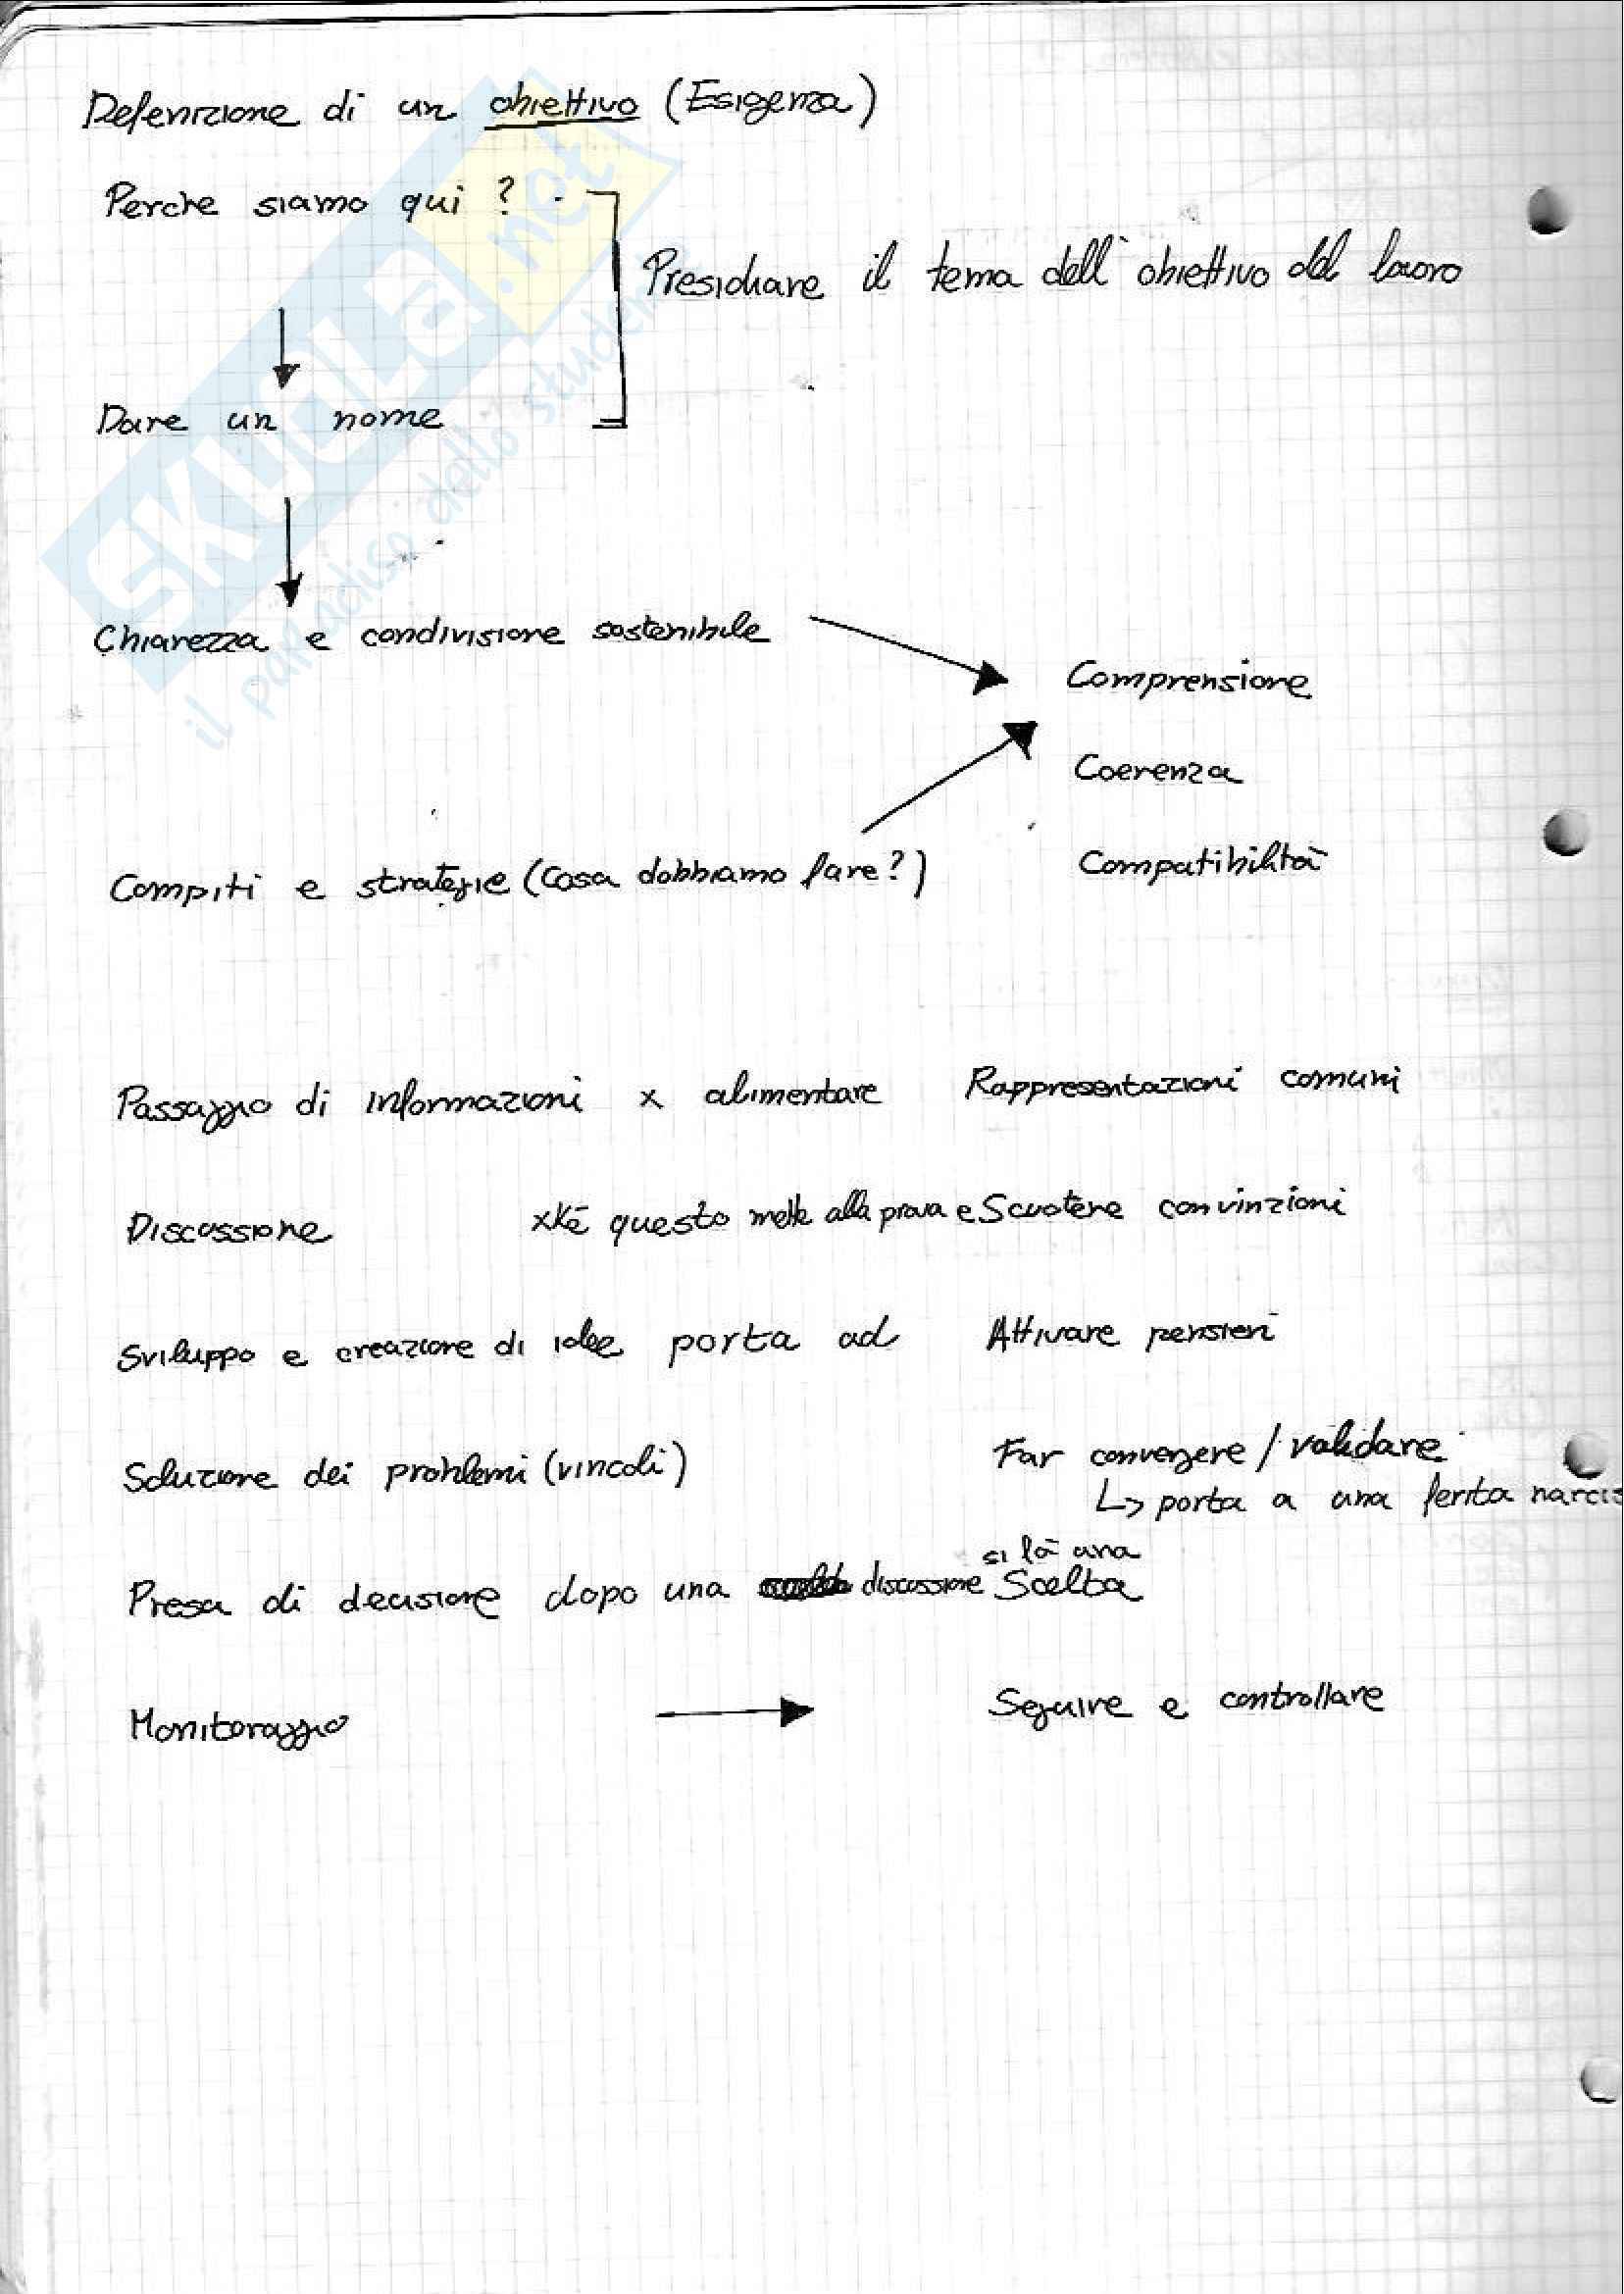 Defenizione di un obiettivo (Esigenza)
Perche siamo qui ?
Presidiare il tema dell' obiettivo del lavoro
Dare un nome
Chiarezza e condivisione sostenibile
Comprensione
Coerenza
Compiti e strategie (Cosa dobbiamo fare?)
Compatibilità
Passaggio di informazioni x alimentare Rappresentazioni comuni
Discussione xké questo mette alla prova e Scuotere convinzioni
Sviluppo e creazione di idee porta ad Attivare pensieri
Soluzione dei problemi (vincoli) Far convergere / validare
↳ porta a una ferita narcis
si fà una
Presa di decisione dopo una discussione Scelta
Monitoraggio → Seguire e controllare
SKUOLA.net
il paradiso dello studente